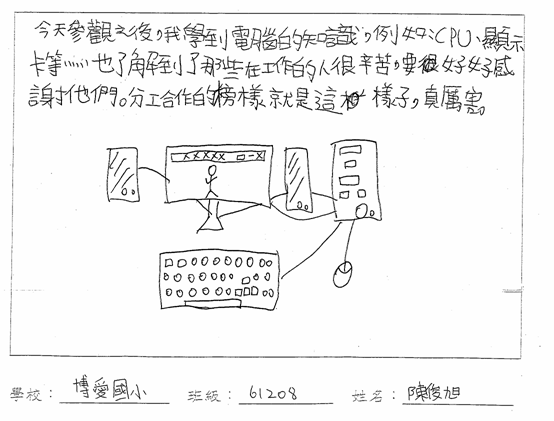 今天參觀之後,我學到電腦的知識,例如:CPU、顯示
卡等……也了解到了那些在工作的人很辛苦,要好好感
謝他們。分工合作的榜樣就是這樣子,真厲害。
XXXXX □-X
學校: 博愛國小 班級: 61208 姓名: 陳俊旭